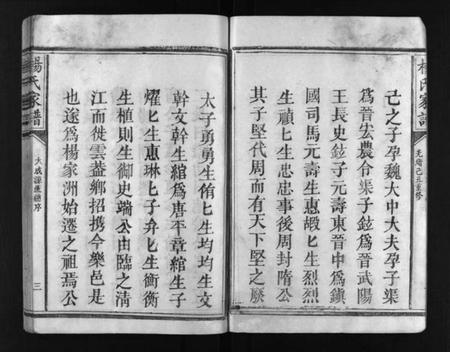 楊氏家譜
光緒己丑重修
己之子孕魏大中大夫孕子渠
爲晉宏農令渠子鉉爲晉武陽
王長史鉉子元壽東晉中爲鎮
國司馬元壽生惠嘏匕生烈烈
生禎匕生忠忠事後周封隋公
其子堅代周而有天下堅之厥
太子勇勇生侑匕生均均生文
幹文幹生綰爲唐平章綰生子
燿匕生惠琳匕子弁匕生衡衡
生植則生御史端公由臨之清
江而徙雲葢鄉招携今樂邑是
也遂爲楊家洲始遷之祖焉公
楊氏家譜
大成源流總序
三